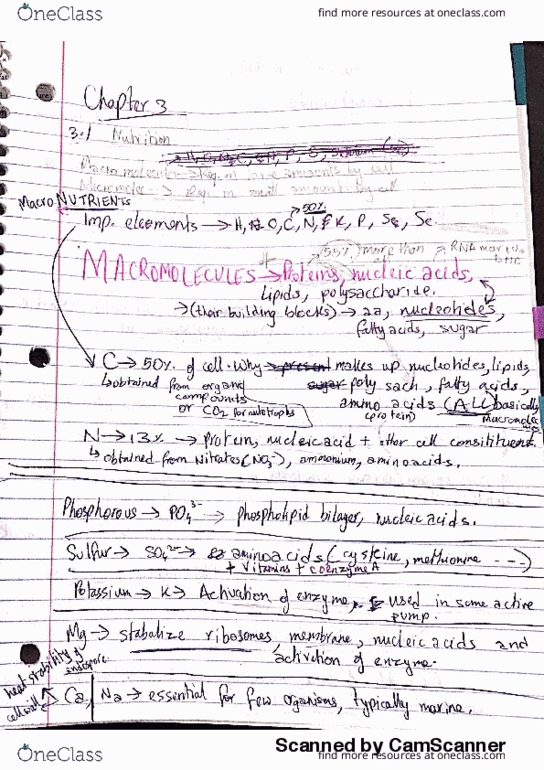 OneClass
find more resources at oneclass.com
Chapter 3
3.1 Nutrition
Macro NUTRIENTS
50%
Imp. elements → H, O, C, N, K, P, S, Se.
55% more than RNA more
MACROMOLECULES → Proteins, nucleic acids,
Lipids, polysaccharide.
→ (their building blocks) → aa, nucleotides,
fatty acids, sugar
C → 50% of cell. Why → present makes up nucleotides, lipids,
↳ obtained from organic sugar poly sach, fatty acids,
compounds amino acids (ALL) basically
or CO2 for autotrophs (protein) Macromolecules
N → 13% → Protein, nucleic acid + other cell constituent.
↳ obtained from Nitrates (NO3-), ammonium, amino acids.
Phosphorous → PO4 3- → phospholipid bilayer, nucleic acids.
Sulfur → SO4 2- → aminoacids (cysteine, methionine ---)
+ Vitamins + coenzyme A
Potassium → K → Activation of enzyme, used in some active
pump.
Mg → stabalize ribosomes, membrane, nucleic acids and
activation of enzyme.
heat stability of
endospore
cell wall
Ca, Na → essential for few organisms, typically marine.
Scanned by CamScanner
OneClass
find more resources at oneclass.com